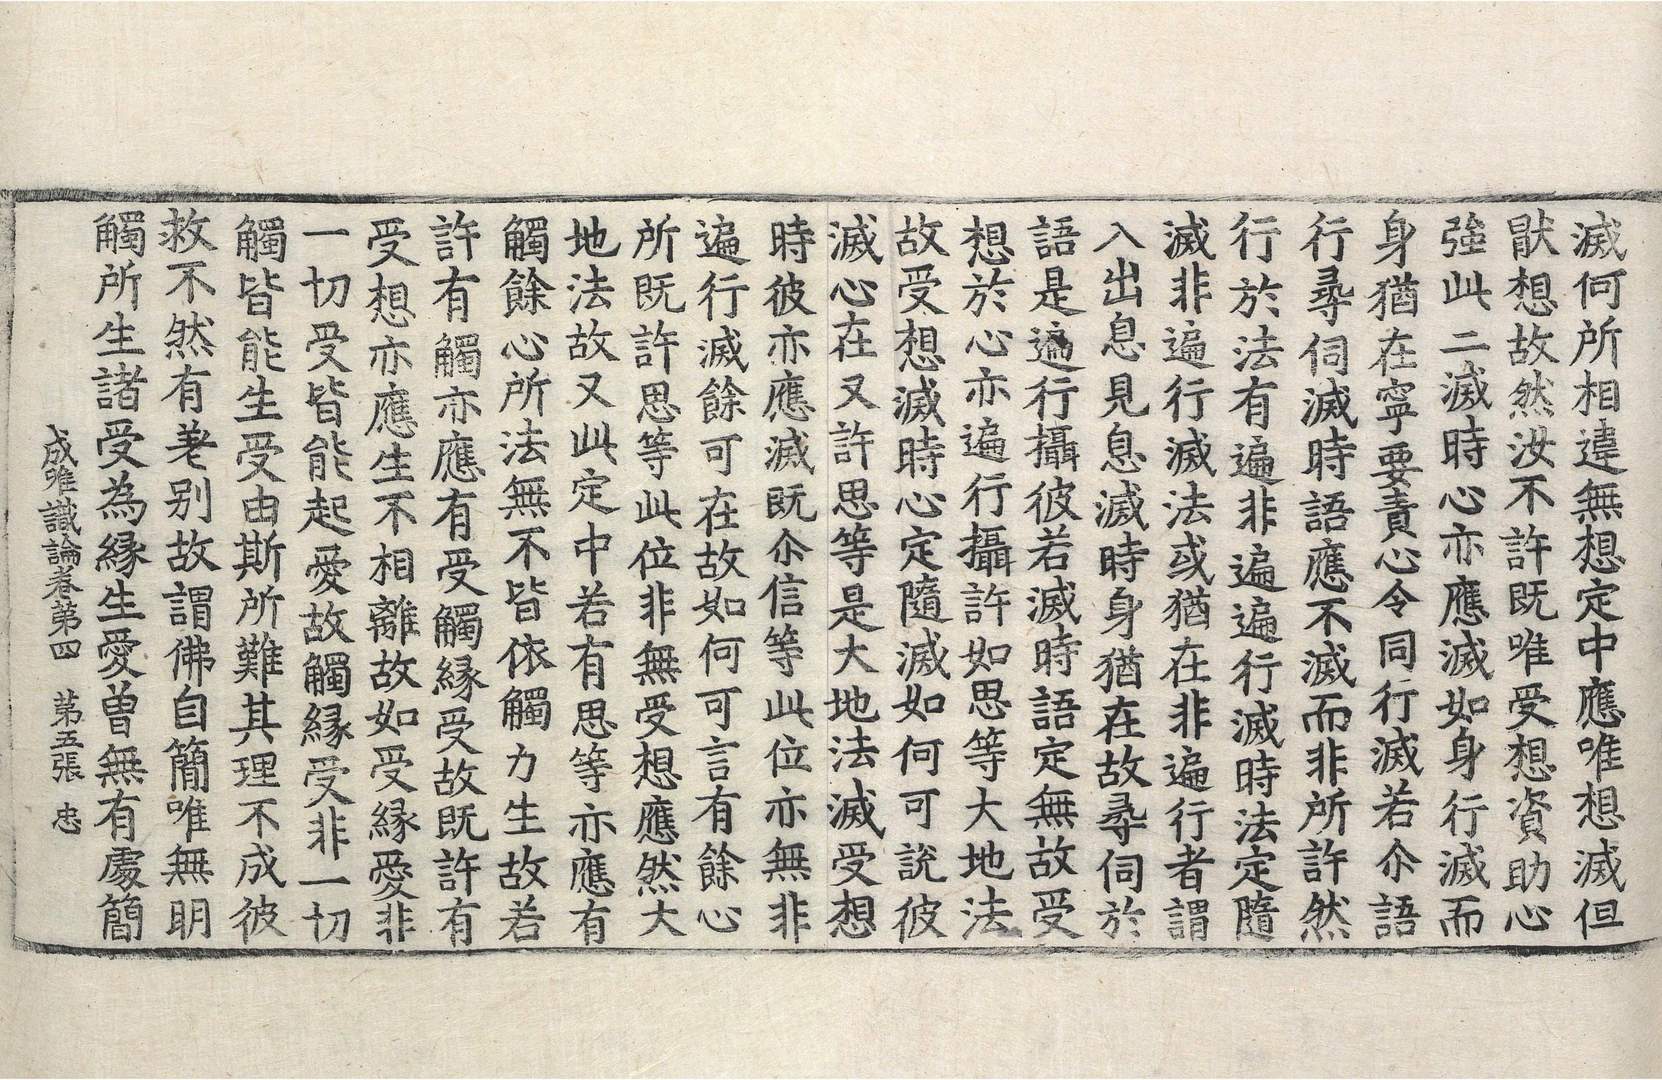 滅何所相違無想定中應唯想滅但
猒想故然汝不許既唯受想資助心
強此二滅時心亦應滅如身行滅而
身猶在寧要責心令同行滅若尒語
行尋伺滅時語應不滅而非所許然
行於法有遍非遍遍行滅時法定隨
滅非遍行滅法或猶在非遍行者謂
入出息見息滅時身猶在故尋伺於
語是遍行攝彼若滅時語定無故受
想於心亦遍行攝許如思等大地法
故受想滅時心定隨滅如何可說彼
滅心在又許思等是大地法滅受想
時彼亦應滅既尒信等此位亦無非
遍行滅餘可在故如何可言有餘心
所既許思等此位非無受想應然大
地法故又此定中若有思等亦應有
觸餘心所法無不皆依觸力生故若
許有觸亦應有受觸緣受故既許有
受想亦應生不相離故如受緣愛非
一切受皆能起愛故觸緣受非一切
觸皆能生受由斯所難其理不成彼
救不然有差別故謂佛自簡唯無明
觸所生諸受為緣生愛曾無有處簡
成唯識論卷第四 第五張 忠